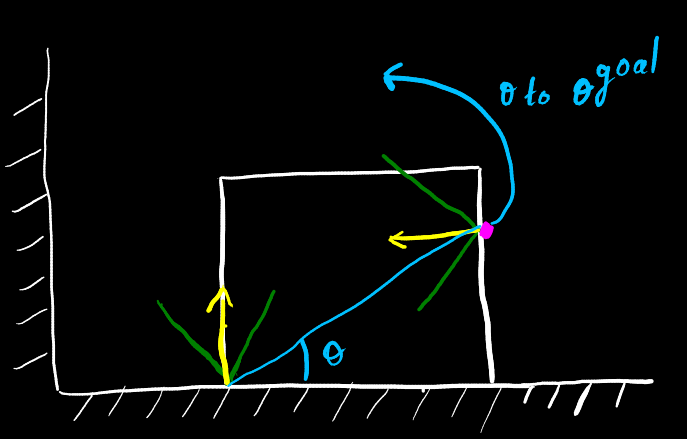 θ to θ^goal
θ